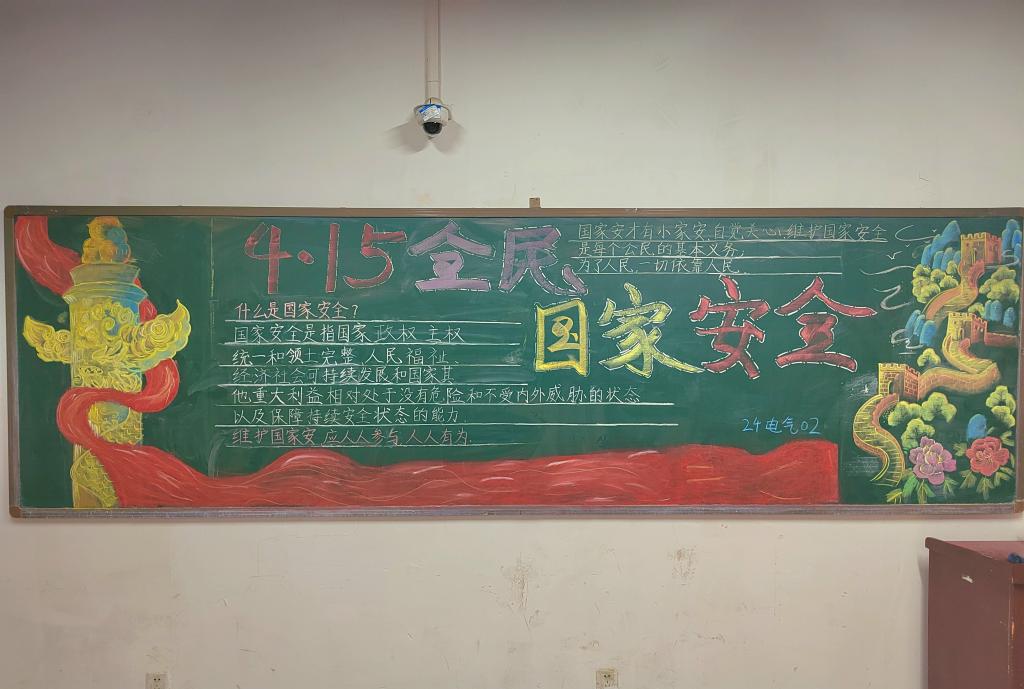 4·15全民
国家安全
国家安才有小家安,自觉关心维护国家安全
是每个公民的基本义务,
为了人民,一切依靠人民.
什么是国家安全?
国家安全是指国家政权 主权
统一和领土完整、人民福祉、
经济社会可持续发展和国家其
他重大利益相对处于没有危险和不受内外威胁的状态
以及保障持续安全状态的能力
维护国家安,应人人参与,人人有为.
24电气02